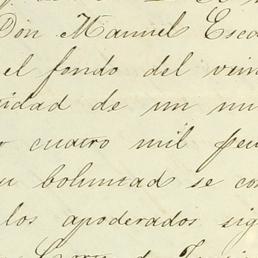 Don Manuel Esco
el fondo del vein
tidad de un mi
cuatro mil pe
su boluntad se co
los apoderados sig